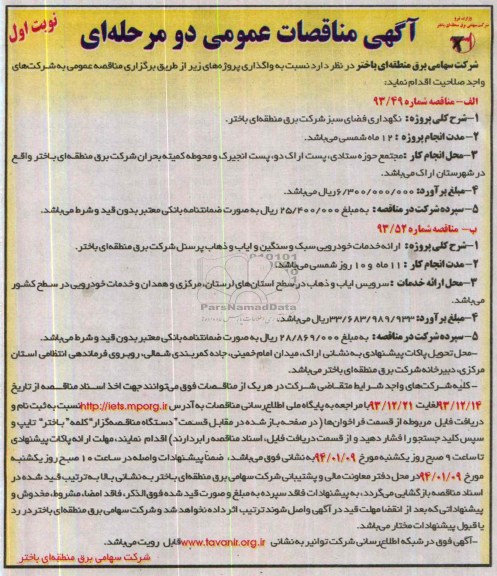 نوبت اول
وزارت نیرو
شرکت سهامی برق منطقه‌ای باختر
آگهی مناقصات عمومی دو مرحله‌ای
شرکت سهامی برق منطقه‌ای باختر در نظر دارد نسبت به واگذاری پروژه‌های زیر از طریق برگزاری مناقصه عمومی به شرکت‌های
واجد صلاحیت اقدام نماید:
الف- مناقصه شماره ۹۳/۴۹
۱-شرح کلی پروژه: نگهداری فضای سبز شرکت برق منطقه‌ای باختر.
۲-مدت انجام پروژه : ۱۲ ماه شمسی می‌باشد.
۳-محل انجام کار :مجتمع حوزه ستادی، پست اراک دو، پست انجیرک و محوطه کمیته بحران شرکت برق منطقه‌ای باختر واقع
در شهرستان اراک می‌باشد.
۴-مبلغ برآورد: ۶/۳۰۰/۰۰۰/۰۰۰ریال می‌باشد.
۵-سپرده شرکت در مناقصه: به مبلغ ۲۵/۴۰۰/۰۰۰ ریال به صورت ضمانتنامه بانکی معتبر بدون قید و شرط می‌باشد.
ب- مناقصه شماره ۹۳/۵۲
۱-شرح کلی پروژه: ارائه خدمات خودرویی سبک و سنگین و ایاب و ذهاب پرسنل شرکت برق منطقه‌ای باختر.
۲-مدت انجام کار : ۱۱ ماه و ۱۰ روز شمسی می‌باشد.
۳-محل ارائه خدمات : سرویس ایاب و ذهاب در سطح استان‌های لرستان، مرکزی و همدان و خدمات خودرویی در سطح کشور
می‌باشد.
ParsNamadData
۴-مبلغ برآورد: ۳۳/۶۸۳/۹۸۹/۹۳۳ریال می‌باشد.
۵-سپرده شرکت در مناقصه: به مبلغ ۲۸/۸۶۹/۰۰۰ ریال به صورت ضمانتنامه بانکی معتبر بدون قید و شرط می‌باشد.
-محل تحویل پاکات پیشنهادی به نشانی اراک، میدان امام خمینی، جاده کمربندی شمالی، روبروی فرماندهی انتظامی استان
مرکزی، دبیرخانه شرکت برق منطقه‌ای باختر می‌باشد.
- کلیه شرکت‌های واجد شرایط متقاضی شرکت در هر یک از مناقصات فوق می‌توانند جهت اخذ اسناد مناقصه از تاریخ
۹۳/۱۲/۱۴لغایت ۹۳/۱۲/۲۱با مراجعه به پایگاه ملی اطلاع‌رسانی مناقصات به آدرس http://iets.mporg.irنسبت به ثبت نام و
دریافت فایل مربوطه از قسمت فراخوان‌ها (در صفحه باز شده در مقابل قسمت" دستگاه مناقصه‌گزار"کلمه" باختر" تایپ و
سپس کلید جستجو را فشار دهید و از قسمت دریافت فایل، اسناد مناقصه را بردارند) اقدام نمایند، مهلت ارائه پاکات پیشنهادی
تا ساعت ۹ صبح روز یکشنبه مورخ ۹۴/۰۱/۰۹به نشانی فوق می‌باشد، ضمناً پیشنهادات واصله در ساعت ۱۰ صبح روز یکشنبه
مورخ ۹۴/۰۱/۰۹در محل دفتر معاونت مالی و پشتیبانی شرکت سهامی برق منطقه‌ای باختر به نشانی بالا به ترتیب قید شده در
اسناد مناقصه بازگشایی می‌گردد، به پیشنهادات فاقد سپرده به مبلغ و صورت قید شده فوق‌الذکر، فاقد امضا، مشروط، مخدوش و
پیشنهاداتی که بعد از انقضا مهلت قید در آگهی واصل شوند ترتیب اثر داده نخواهد شد و شرکت سهامی برق منطقه‌ای باختر در رد
یا قبول پیشنهادات مختار می‌باشد.
-آگهی فوق در شبکه اطلاع‌رسانی شرکت توانیر به نشانی www.tavanir.org.irقابل رویت می‌باشد.
شرکت سهامی برق منطقه‌ای باختر